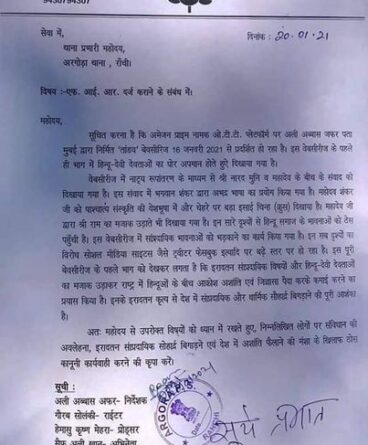 9430794307
सेवा में,
दिनांक : 20-01-21
थाना प्रभारी महोदय,
अरगोड़ा थाना , राँची।
विषय :-एफ. आई. आर. दर्ज कराने के संबंध में।
महोदय,
सूचित करना है कि अमेजन प्राइम नामक ओ.टी.टी. प्लेटफॉर्म पर अली अब्बास जफर पता
मुंबई द्वारा निर्मित 'तांडव' वेबसीरिज 16 जनवरी 2021 से प्रदर्शित हो रहा है। इस वेबसीरीज के पहले
ही भाग में हिन्दू-देवी देवताओं का घोर अपमान होते हुए दिखाया गया है।
वेबसीरीज में नाट्य रूपांतरण के माध्यम से श्री नारद मुनि व महादेव के बीच के संवाद को
दिखाया गया है। इस संवाद में भगवान शंकर द्वारा अभद्र भाषा का प्रयोग किया गया है। महादेव शंकर
जी को पाश्चात्य संस्कृति की वेशभूषा में और चेहरे पर बड़ा इसाई चिन्ह (क्रूस) दिखाया है। महादेव जी
द्वारा श्री राम का मजाक उड़ाते भी दिखाया गया है। इन सारे दृश्यों से हिन्दू समाज के भावनाओं को ठेस
पहुँची है। इस वेबसीरीज में सांप्रदायिक भावनाओं को भड़काने का कार्य किया गया है। इन सब दृश्यों का
विरोध सोशल मीडिया साइटस जैसे ट्वीटर फेसबुक इत्यादि पर बड़े स्तर पर हो रहा है। इस पूरी
वेबसीरीज के पहले भाग को देखकर लगता है कि इरादतन सांप्रदायिक विषयों और हिन्दू-देवी देवताओं
का मजाक उड़ाकर राष्ट्र में हिन्दूओं के बीच आक्रोश अशांति एवं जिज्ञासा पैदा करके कमाई करने का
प्रयास किया है। इनके इरादतन कृत्य से देश में सांप्रदायिक और धार्मिक सौहार्द्र बिगाड़ने की पूरी आशंका
है।
अतः महोदय से उपरोक्त विषयों को ध्यान में रखते हुए, निम्नलिखित लोगों पर संविधान की
अवलेहना, इरादतन सांप्रदायिक सौहार्द्र बिगाड़ने एवं देश में अशांति फैलाने की मंशा के खिलाफ ठोस
कानूनी कार्यवाही करने की कृपा करें।
सूची :
अली अब्बास अफर- निर्देशक
गौरब सोलंकी- राईटर
हेमासु कृष्ण मेहरा- प्रोड्सर
सैफ अली खान- अभिनेता
ARGORA
सूर्य प्रभात